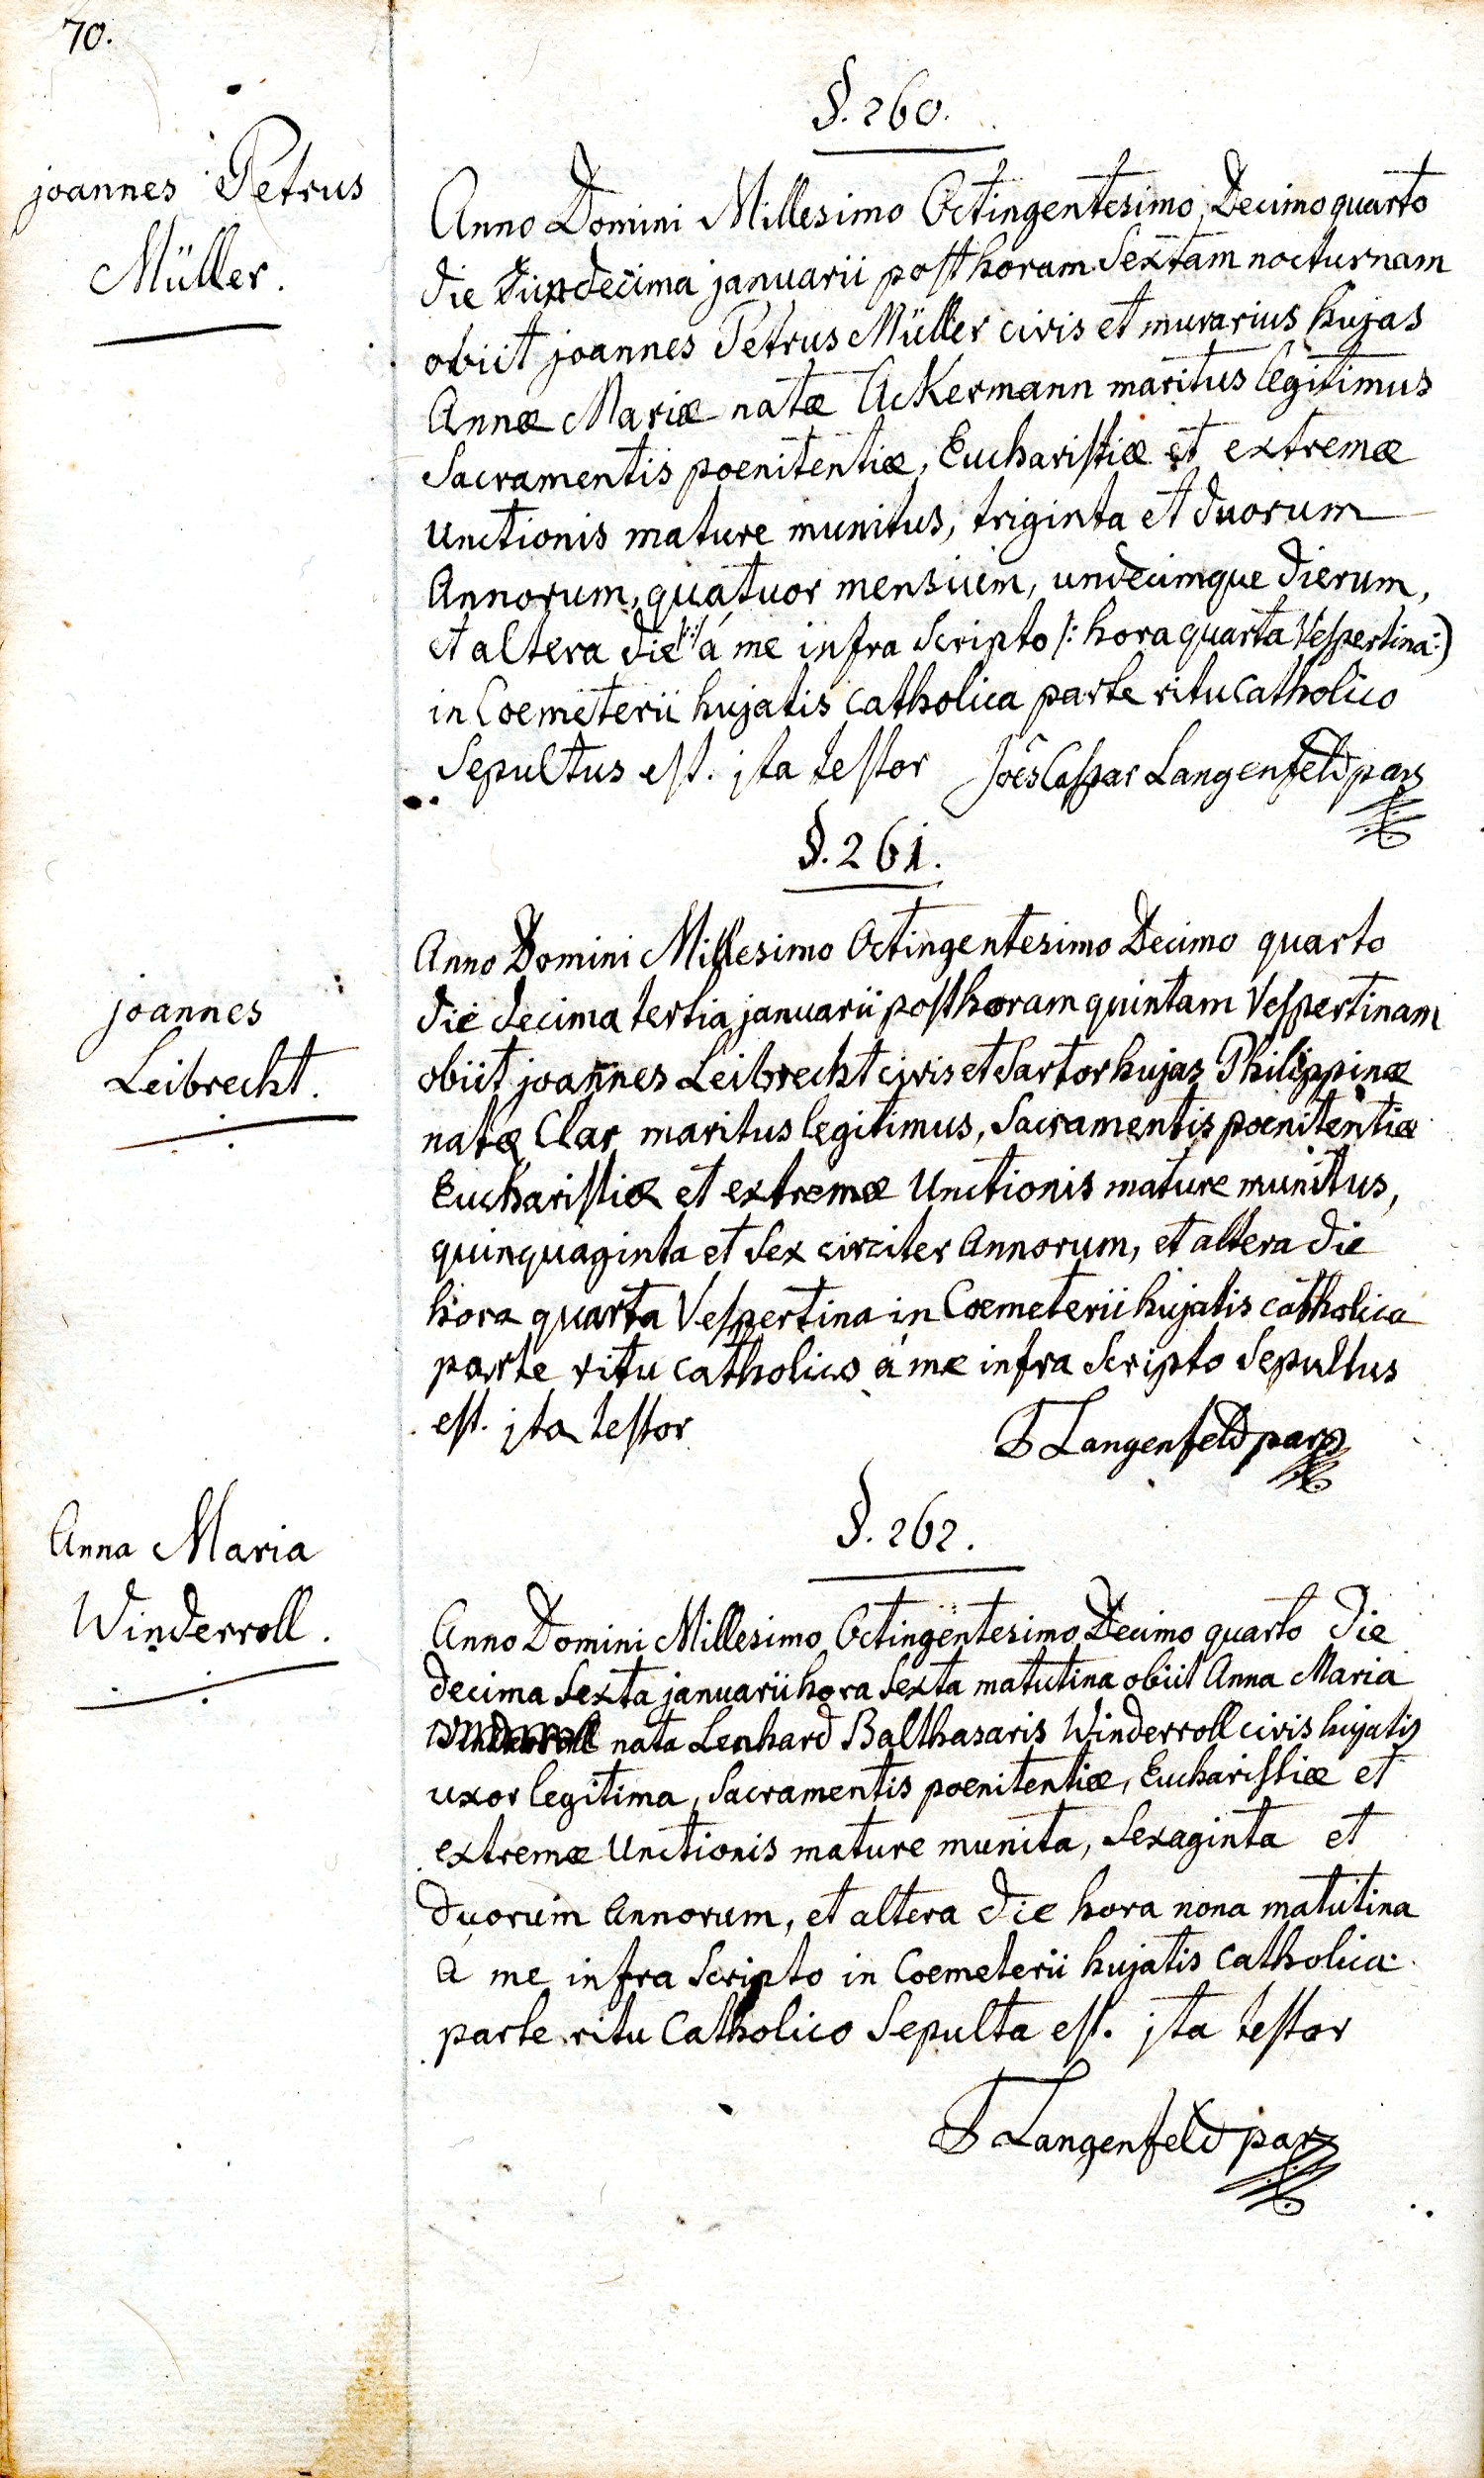 70.
§. 260.
joannes Petrus
Müller.
Anno Domini Millesimo Octingentesimo Decimo quarto
die undecima januarii post horam Sextam nocturnam
obiit joannes Petrus Müller civis et murarius hujas
Annæ Mariæ natæ Ackermann maritus legitimus
Sacramentis poenitentiæ, Eucharistiæ et extremæ
Unctionis mature munitus, triginta et duorum
Annorum, quatuor mensium, undecimque dierum,
et altera die á me infra Scripto /: hora quarta Vespertina :)
in Coemeterii hujatis Catholica parte ritu Catholico
Sepultus est. jta testor Joês Caspar Langenfeld par
§. 261.
joannes
Leibrecht.
Anno Domini Millesimo Octingentesimo Decimo quarto
die decima tertia januarii post horam quintam Vespertinam
obiit joannes Leibrecht civis et Sartor hujas Philippinæ
natæ Clar maritus legitimus, Sacramentis poenitentiæ
Eucharistiæ et extremæ Unctionis mature munitus,
quinquaginta et Sex circiter Annorum, et altera die
hora quarta Vespertina in Coemeterii hujatis catholica
parte ritu catholico á me infra Scripto Sepultus
est. jta testor Langenfeld par
§. 262.
Anna Maria
Winderroll.
Anno Domini Millesimo Octingentesimo Decimo quarto die
decima Sexta januarii hora Sexta matutina obiit Anna Maria
Winderroll nata Lenhard Balthasaris Winderroll civis hujatis
uxor legitima, Sacramentis poenitentiæ, Eucharistiæ et
extremæ Unctionis mature munita, Sexaginta et
duorum Annorum, et altera die hora nona matutina
á me infra Scripto in Coemeterii hujatis catholica
parte ritu Catholico Sepulta est. jta testor
Langenfeld par